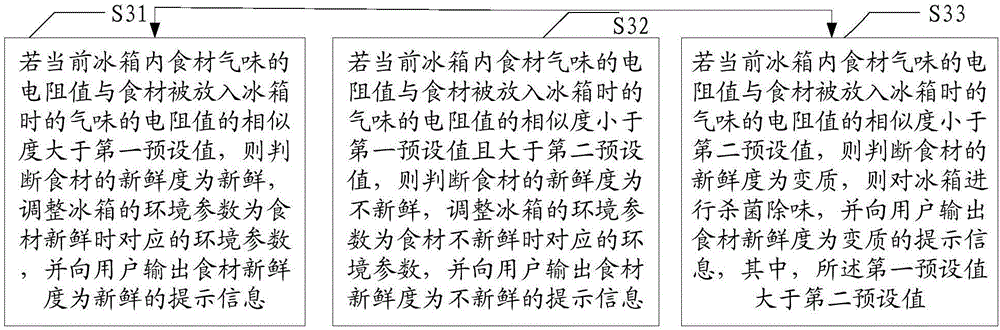 S31
若当前冰箱内食材气味的
电阻值与食材被放入冰箱
时的气味的电阻值的相似
度大于第一预设值，则判
断食材的新鲜度为新鲜，
调整冰箱的环境参数为食
材新鲜时对应的环境参数
，并向用户输出食材新鲜
度为新鲜的提示信息
S32
若当前冰箱内食材气味的电
阻值与食材被放入冰箱时的
气味的电阻值的相似度小于
第一预设值且大于第二预设
值，则判断食材的新鲜度为
不新鲜，调整冰箱的环境参
数为食材不新鲜时对应的环
境参数，并向用户输出食材
新鲜度为不新鲜的提示信息
S33
若当前冰箱内食材气味的电
阻值与食材被放入冰箱时的
气味的电阻值的相似度小于
第二预设值，则判断食材的
新鲜度为变质，则对冰箱进
行杀菌除味，并向用户输出
食材新鲜度为变质的提示信
息，其中，所述第一预设值
大于第二预设值